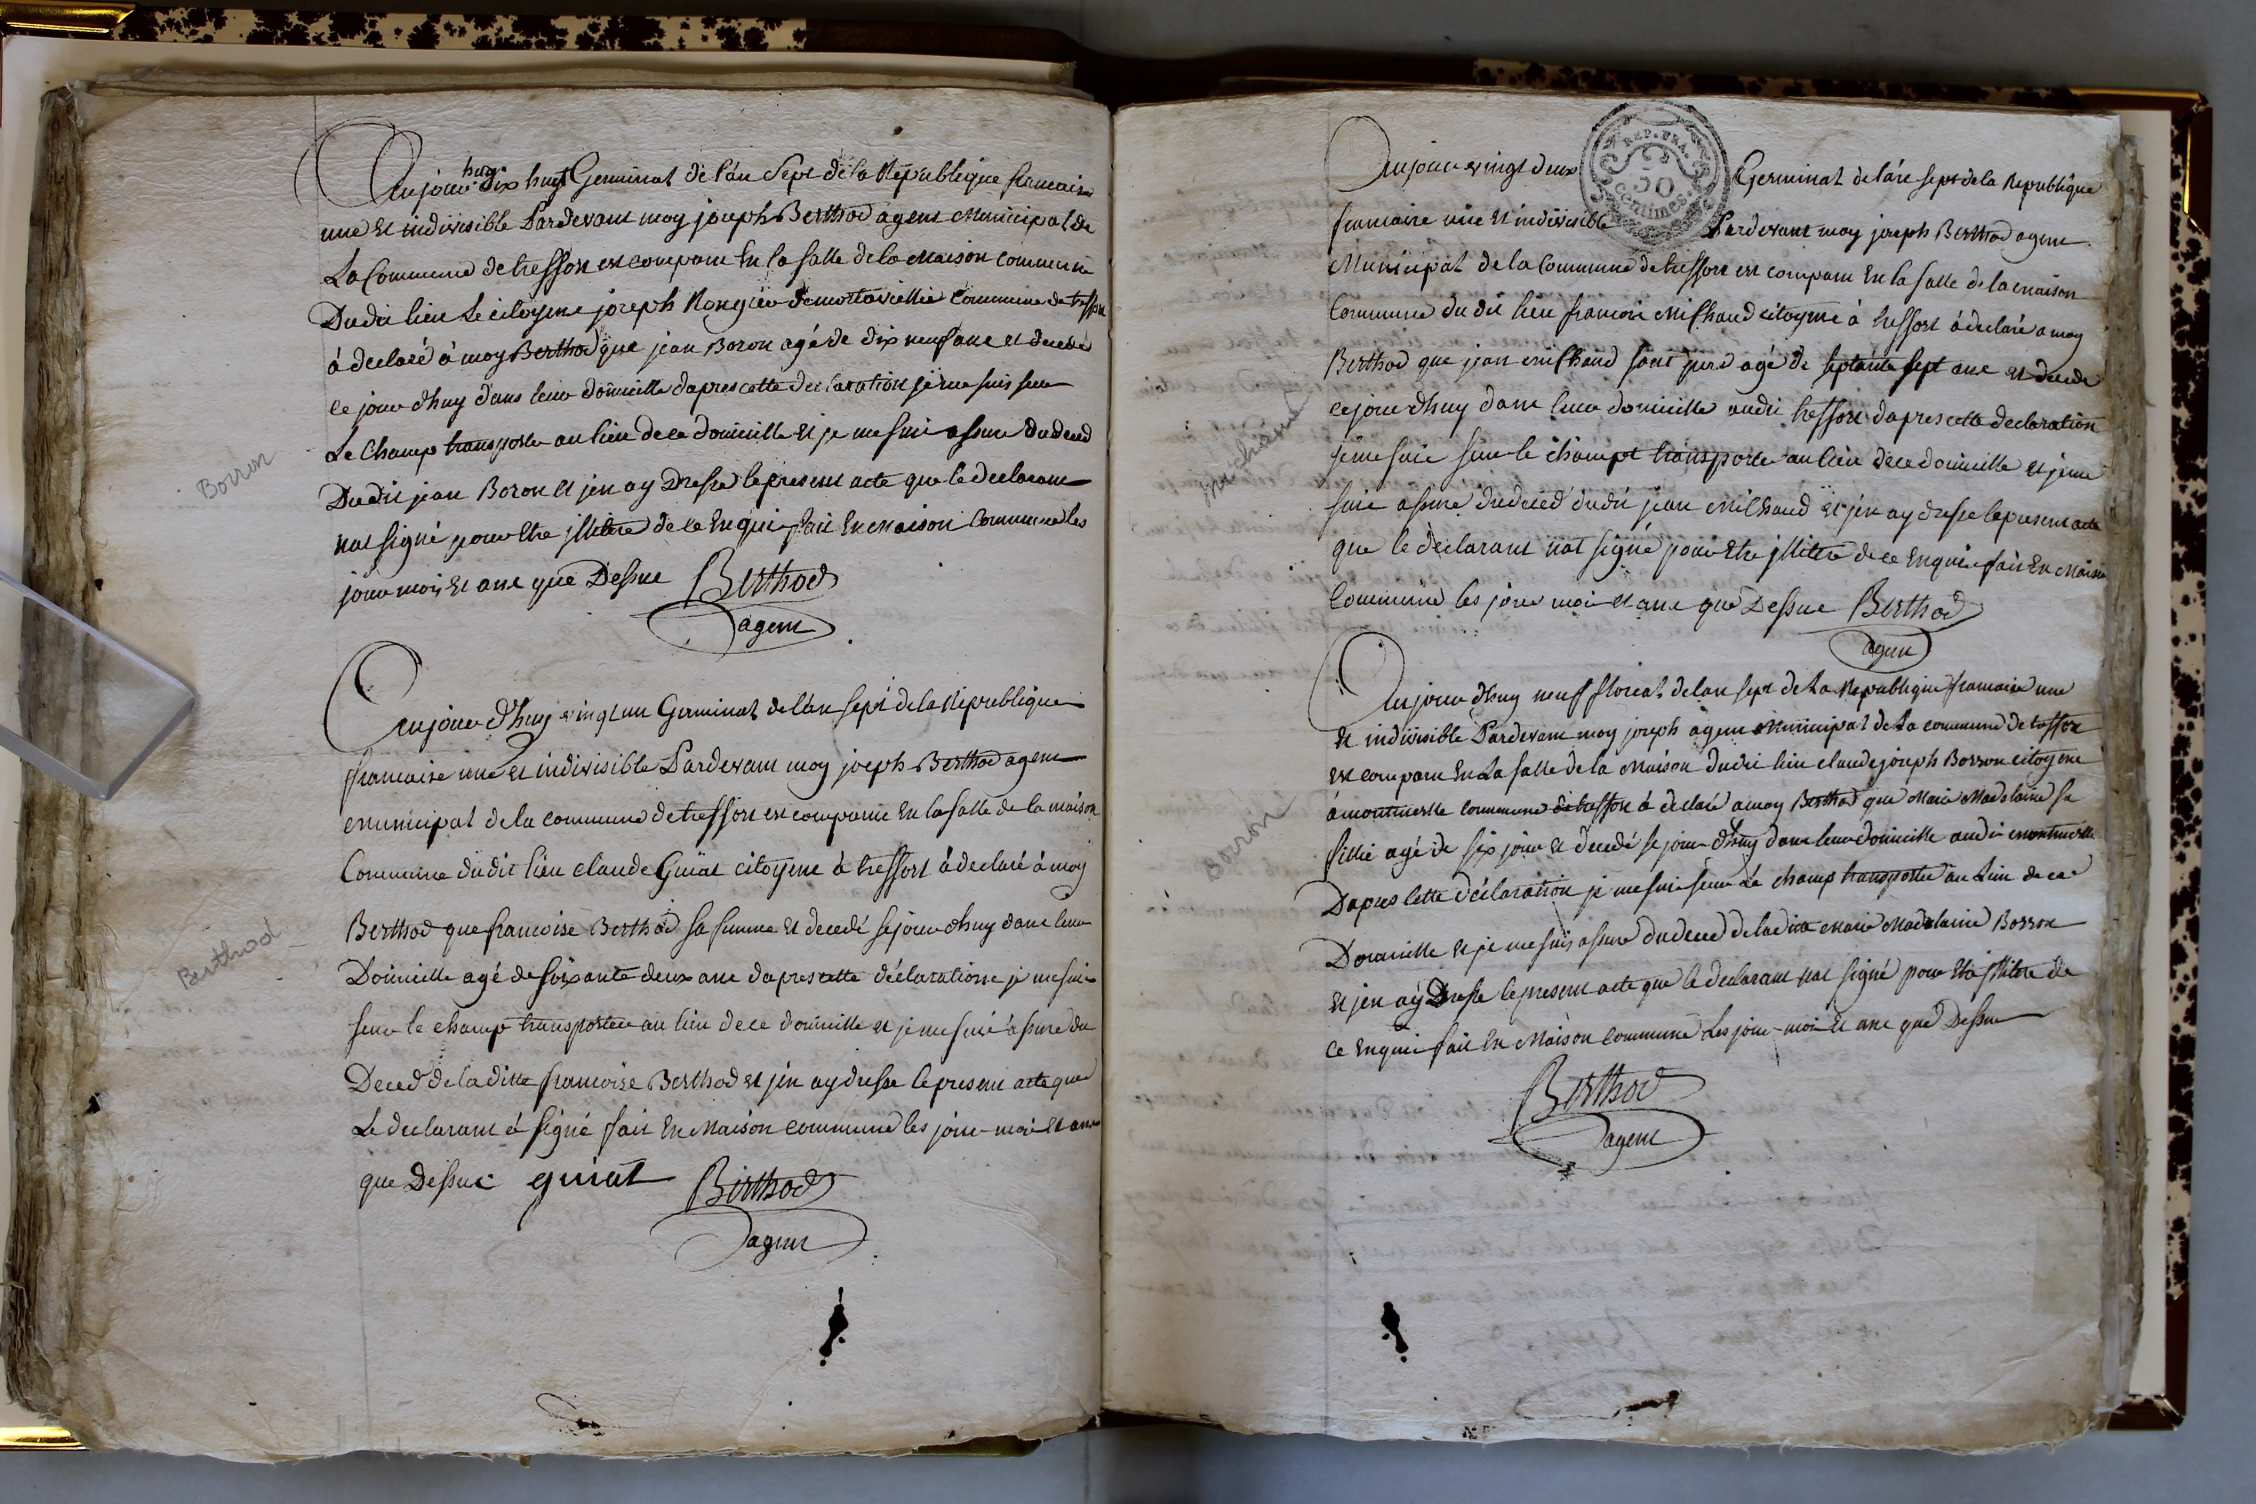 Aujour huy dix huyt Germinal de l'an Sept de la Republique francaise
une Et indivisible Pardevant moy joseph Berthod agent Municipal de
La Commune de tressort est comparu En la salle de la Maison commune
Dudit lieu Le citoyent joseph Rongier commune de tressort
à declaré à moy Berthod que jean Boron agé de dix neuf ans et decedé
ce jour dhuy dans leur domicille dapres cette declaration je me suis seur
Le Champ transporte au lieu de ce domicille Et je me suis assure du deced
Dudit jean Boron Et jen ay Dresse le present acte que le declarant
nat signé pour Etre jllitere de ce Enquis fait En maison Commune les
jour mois Et ans que Dessue Berthod
agent
Borron
Aujour d'huy vingt un Germinal de l'an sept de la Republique
francaise une et indivisible Pardevant moy joseph Berthod agent
municipal de la commune de tressort est comparue En la salle de la maison
Commune dudit lieu claude Guiat citoyent à tressort à declaré à moy
Berthod que francoise Berthod sa femme Et decedé se jour dhuy dans leur
Domicille agé de soixante deux ans dapres cette déclaratione je me suis
seur le champ transportee au lieu de ce domicille et je me suis assure du
Deced de la ditte francoise Berthod et jen ay dresse le present acte que
Le declarant à signé fait En Maison commune les jour mois Et ans
que Dessue guiat Berthod
agent
Berthod
Aujour vingt deux Germinal de lane sept de la Republique
REP. FRA.
50
Centimes
francaise une Et indivisible Pardevant moy joseph Berthod agent
Municipal de la Commune de tressort est comparu En la salle de la maison
Commune du dit lieu francois Michaud citoyent à tressort à declaré a moy
Berthod que jean michaud sont pere agé de septante sept ans et decede
ce jour dhuy dans leur domicille audit tressort dapres cette declaration
je me suis seur le champt transporte au lieu de ce domicille et je me
suis assuré du deced dudit jean Michaud Et jen ay dresse le present acte
que le déclarant nat signé pour Etre jllittere de ce Enquis fait En Maison
Commune les jour mois et ans que Dessue Berthod
agent
michaud
Aujour dhuy neuf floreal de lan sept de la Republique francaise une
et indivisible Pardevant moy joseph agent Municipal de La commune de tressort
est comparu En La salle de la Maison dudit lieu claude joseph Borron citoyent
à commune de tressort à declaré a moy Berthod que Marie Madelaine sa
fillie agé de six jour Et decedé se jour dhuy dans leur domicille audit
Dapres cette déclaration je me suis seur Le champ transportee au Lieu de ce
Domicille et je me suis assure du deced de la ditte Marie Madelaine Borron
Et jen ay Dresse le present acte que le declarant nat signé pour Etre jllitere de
ce Enquis fait En Maison commune Les jour mois Et ans que Dessue
Berthod
agent
Borron